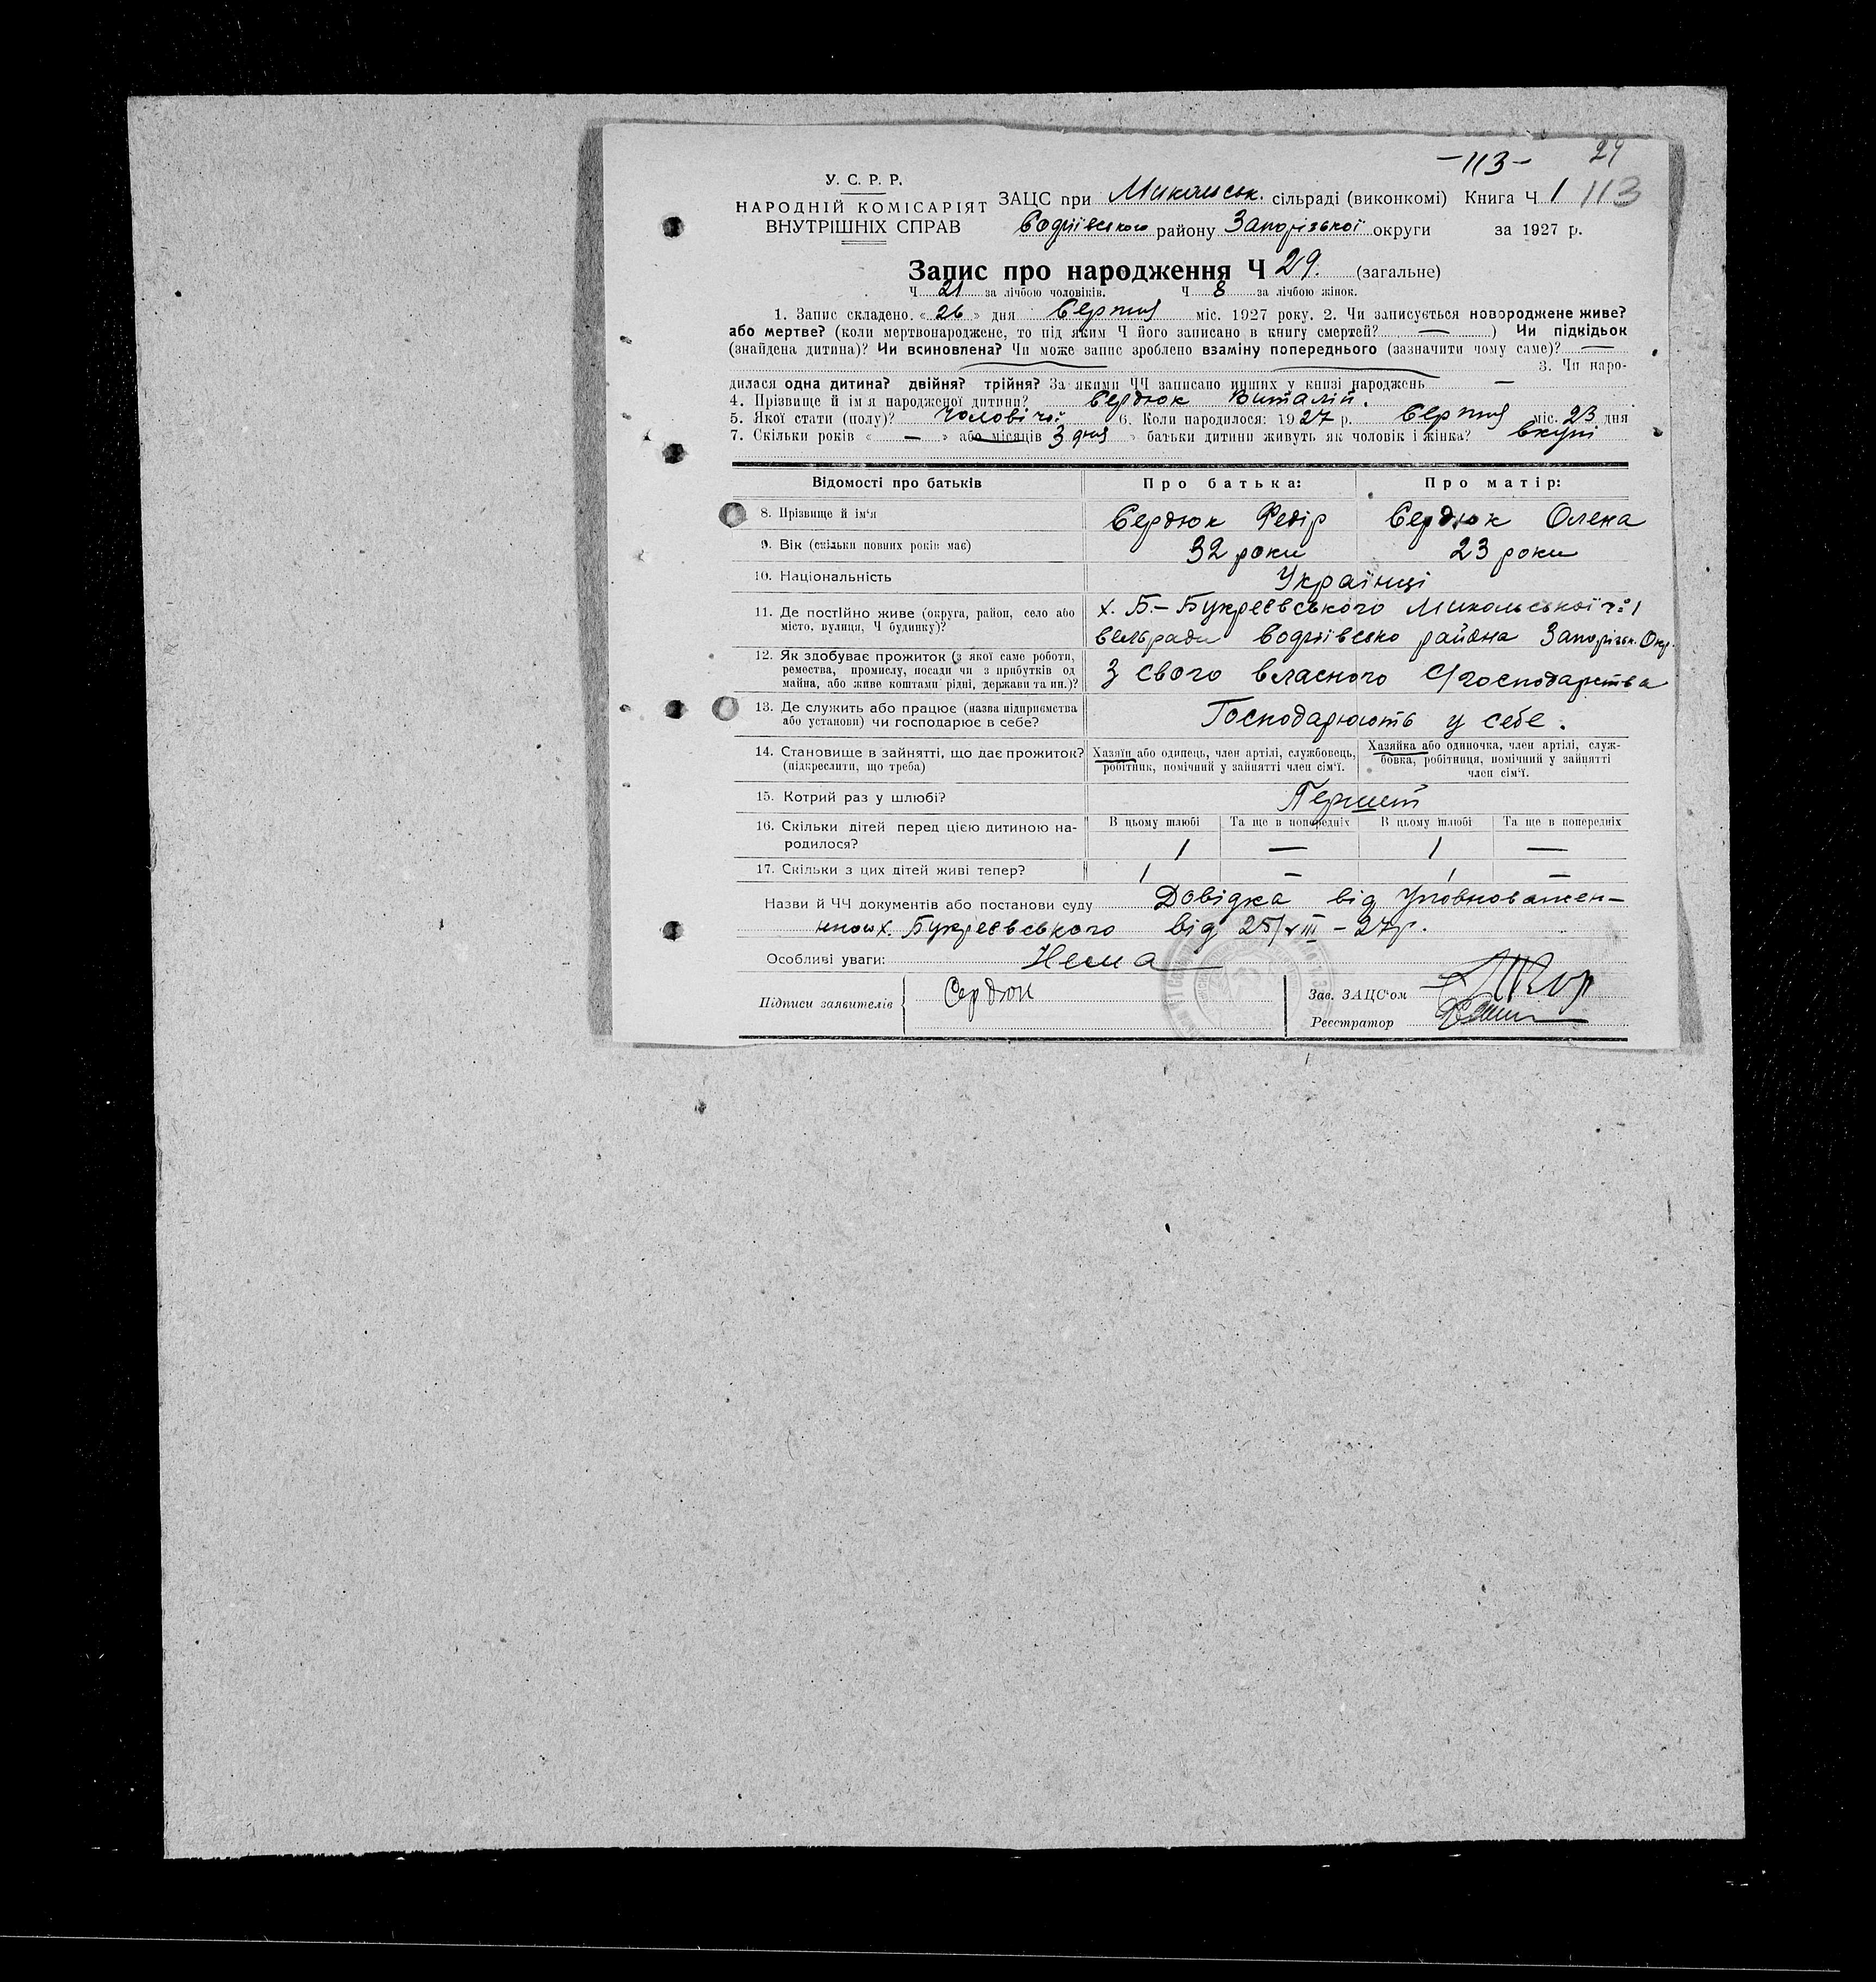 -113- 29
У. С. Р. Р.
НАРОДНІЙ КОМІСАРІЯТ
ВНУТРІШНІХ СПРАВ
ЗАЦС при Микольськ. сільраді (виконкомі) Книга Ч 1 113
Софіївського району Запорізької округи за 1927 р.
Запис про народження Ч 29. (загальне)
Ч 21 за лічбою чоловіків. Ч 8 за лічбою жінок.
1. Запис складено „ 26 “ дня Серпня міс. 1927 року. 2. Чи записується новороджене живе?
або мертве? (коли мертвонароджене, то під яким Ч його записано в книгу смертей? — ) Чи підкідьок
(знайдена дитина)? Чи всиновлена? Чи може запис зроблено взаміну попереднього (зазначити чому саме)? —
3. Чи наро-
дилася одна дитина? двійня? трійня? За якими ЧЧ записано инших у книзі народжень —
4. Прізвище й ім'я народженої дитини? Сердюк Виталій.
5. Якої стати (полу)? Чоловічої 6. Коли народилося: 1927 р. Серпня міс. 23 дня
7. Скільки років « — » або місяців 3 дня » батьки дитини живуть як чоловік і жінка? Вкупі
Відомості про батьків Про батька: Про матір:
8. Прізвище й ім'я Сердюк Федір Сердюк Олена
9. Вік (скільки повних років має) 32 роки 23 роки
10. Національність Українці
11. Де постійно живе (округа, район, село або х. Б.-Букреєвського Микольської
місто, вулиця, Ч будинку)? сельради Софиівсько района Запорізьк. Окр.
12. Як здобуває прожиток (з якої саме роботи,
ремества, промислу, посади чи з прибутків од З свого власного С/господарства
майна, або живе коштами рідні, держави та ин.)?
13. Де служить або працює (назва підприємства Господарюють у себе.
або установи) чи господарює в себе?
14. Становище в зайнятті, що дає прожиток? Хазяїн або одинець, член артілі, службовець, Хазяйка або одиночка, член артілі, служ-
(підкреслити, що треба) робітник, помічний у зайнятті член сім'ї. бовка, робітниця, помічний у зайнятті
член сім'ї.
15. Котрий раз у шлюбі? Перший
16. Скільки дітей перед цією дитиною на- В цьому шлюбі Та ще в попередніх В цьому шлюбі Та ще в попередніх
родилося? 1 — 1 —
17. Скільки з цих дітей живі тепер? 1 — 1 —
Назви й ЧЧ документів або постанови суду Довідка від Уповноважен-
ного х. Букреєвського від 25/VIII - 27р.
Особливі уваги: Нема
Підписи заявителів Сердюк Зав. ЗАЦС'ом
Реєстратор